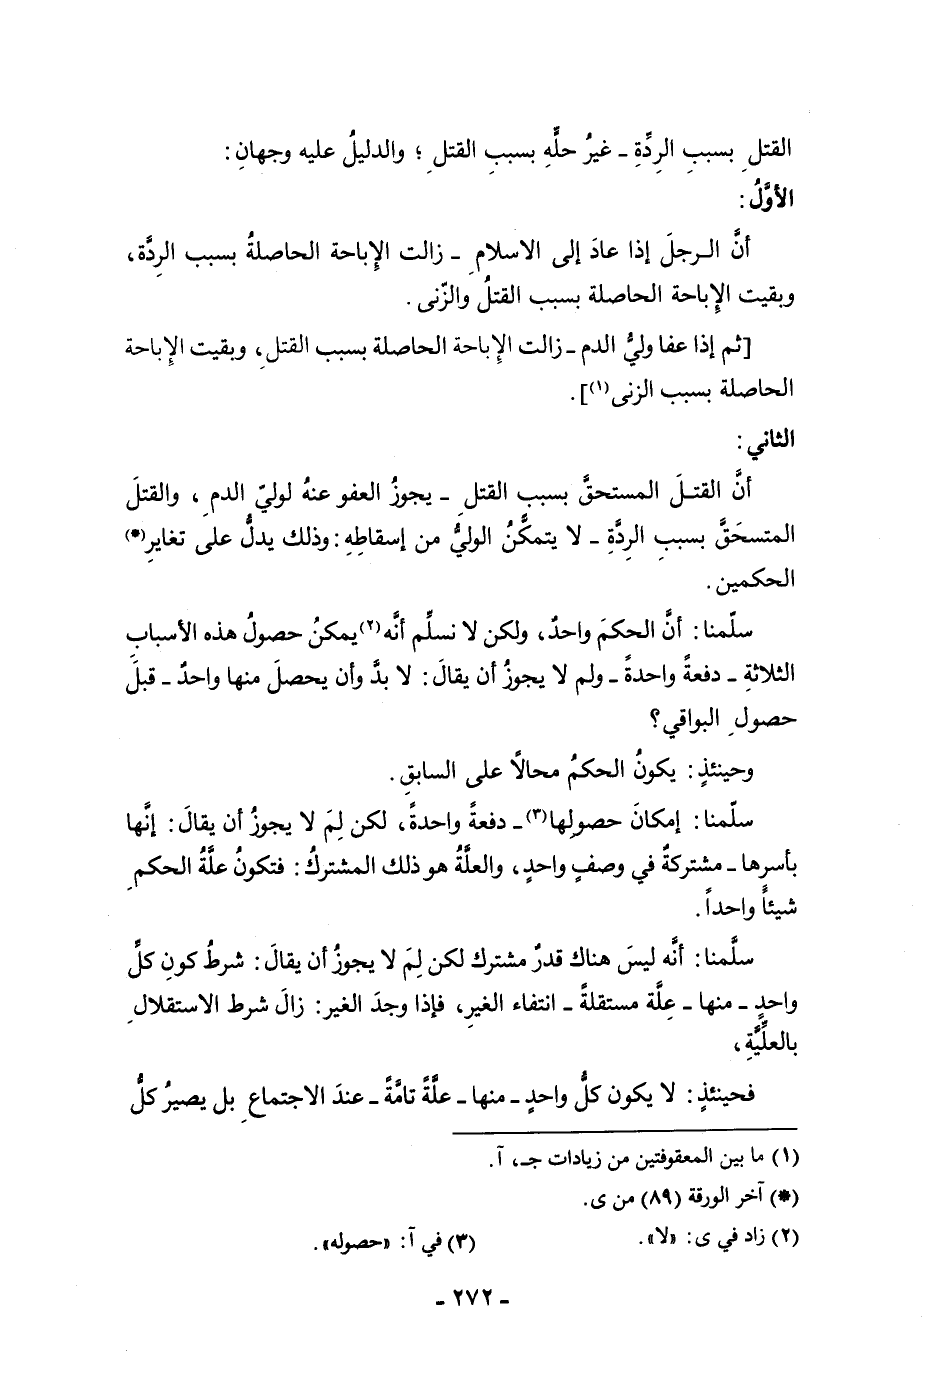 القتلِ بسببِ الردِّةِ ـ غيرُ حلَّهِ بسببِ القتلِ ؛ والدليلُ عليه وجهانِ :
الأوَّلُ :
أنَّ الـرجلَ إذا عادَ إلى الاسلامِ ـ زالت الإِباحة الحاصلةُ بسبب الردَّة،
وبقيت الإِباحة الحاصلة بسبب القتلُ والزّنى .
[ثم إذا عفا وليُّ الدم ـ زالت الإِباحة الحاصلة بسبب القتلِ، وبقيت الإِباحة
الحاصلة بسبب الزنى(١)] .
الثاني :
أنَّ القتـلَ المستحقَّ بسبب القتلِ ـ يجوزُ العفو عنهُ لوليّ الدمِ ، والقتلَ
المتسحَقَّ بسببِ الردَّةِ ـ لا يتمكَّنُ الوليُّ من إسقاطِهِ : وذلك يدلُّ على تغايرِ(*)
الحكمين .
سلّمنا : أنَّ الحكمَ واحدٌ، ولكن لا نسلِّم أنَّه(٢) يمكنُ حصولُ هذه الأسبابِ
الثلاثةِ ـ دفعةً واحدةً ـ ولم لا يجوزُ أن يقالَ : لا بدَّ وأن يحصلَ منها واحدٌ ـ قبلَ
حصولِ البواقي؟
وحينئذٍ : يكونُ الحكمُ محالاً على السابقِ .
سلّمنا : إمكانَ حصولِها(٣) ـ دفعةً واحدةً، لكن لِمَ لا يجوزُ أن يقالَ : إنَّها
بأسرها ـ مشتركةٌ في وصفٍ واحدٍ، والعلَّةُ هو ذلك المشتركُ : فتكونُ علَّةُ الحكمِ
شيئاً واحداً .
سلَّمنا : أنَّه ليسَ هناك قدرٌ مشترك لكن لِمَ لا يجوزُ أن يقالَ : شرطُ كونِ كلِّ
واحدٍ ـ منها ـ علَّة مستقلةً ـ انتفاء الغيرِ، فإذا وجدَ الغير : زالَ شرط الاستقلالِ
بالعلِّيَّةِ،
فحينئذٍ : لا يكون كلُّ واحدٍ ـ منها ـ علَّةً تامَّةً ـ عندَ الاجتماعِ بل يصيرُ كلُّ
(١) ما بين المعقوفتين من زيادات جـ، آ.
(*) آخر الورقة (٨٩) من ى.
(٢) زاد في ى: «لا». (٣) في آ: «حصوله».
ـ ٢٧٢ ـ